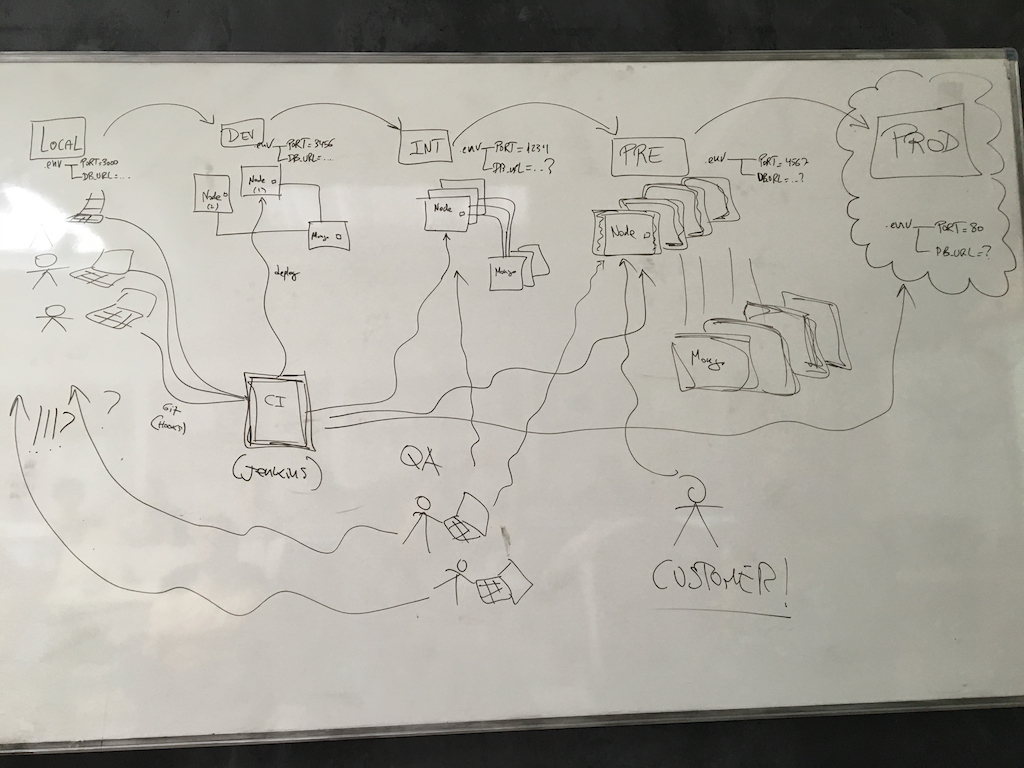 LOCAL
.env PORT=3000
DB_URL=...
DEV
.env PORT=3456
DB_URL=...
Node
(2)
Node
(1)
Mongo
deploy
INT
.env PORT=1234
DB_URL=...?
Node
Mongo
PRE
.env PORT=4567
DB_URL=...?
Node
Mongo
PROD
.env PORT=80
DB_URL=?
!!!!?
?
GIT
CI
(Jenkins)
QA
CUSTOMER!